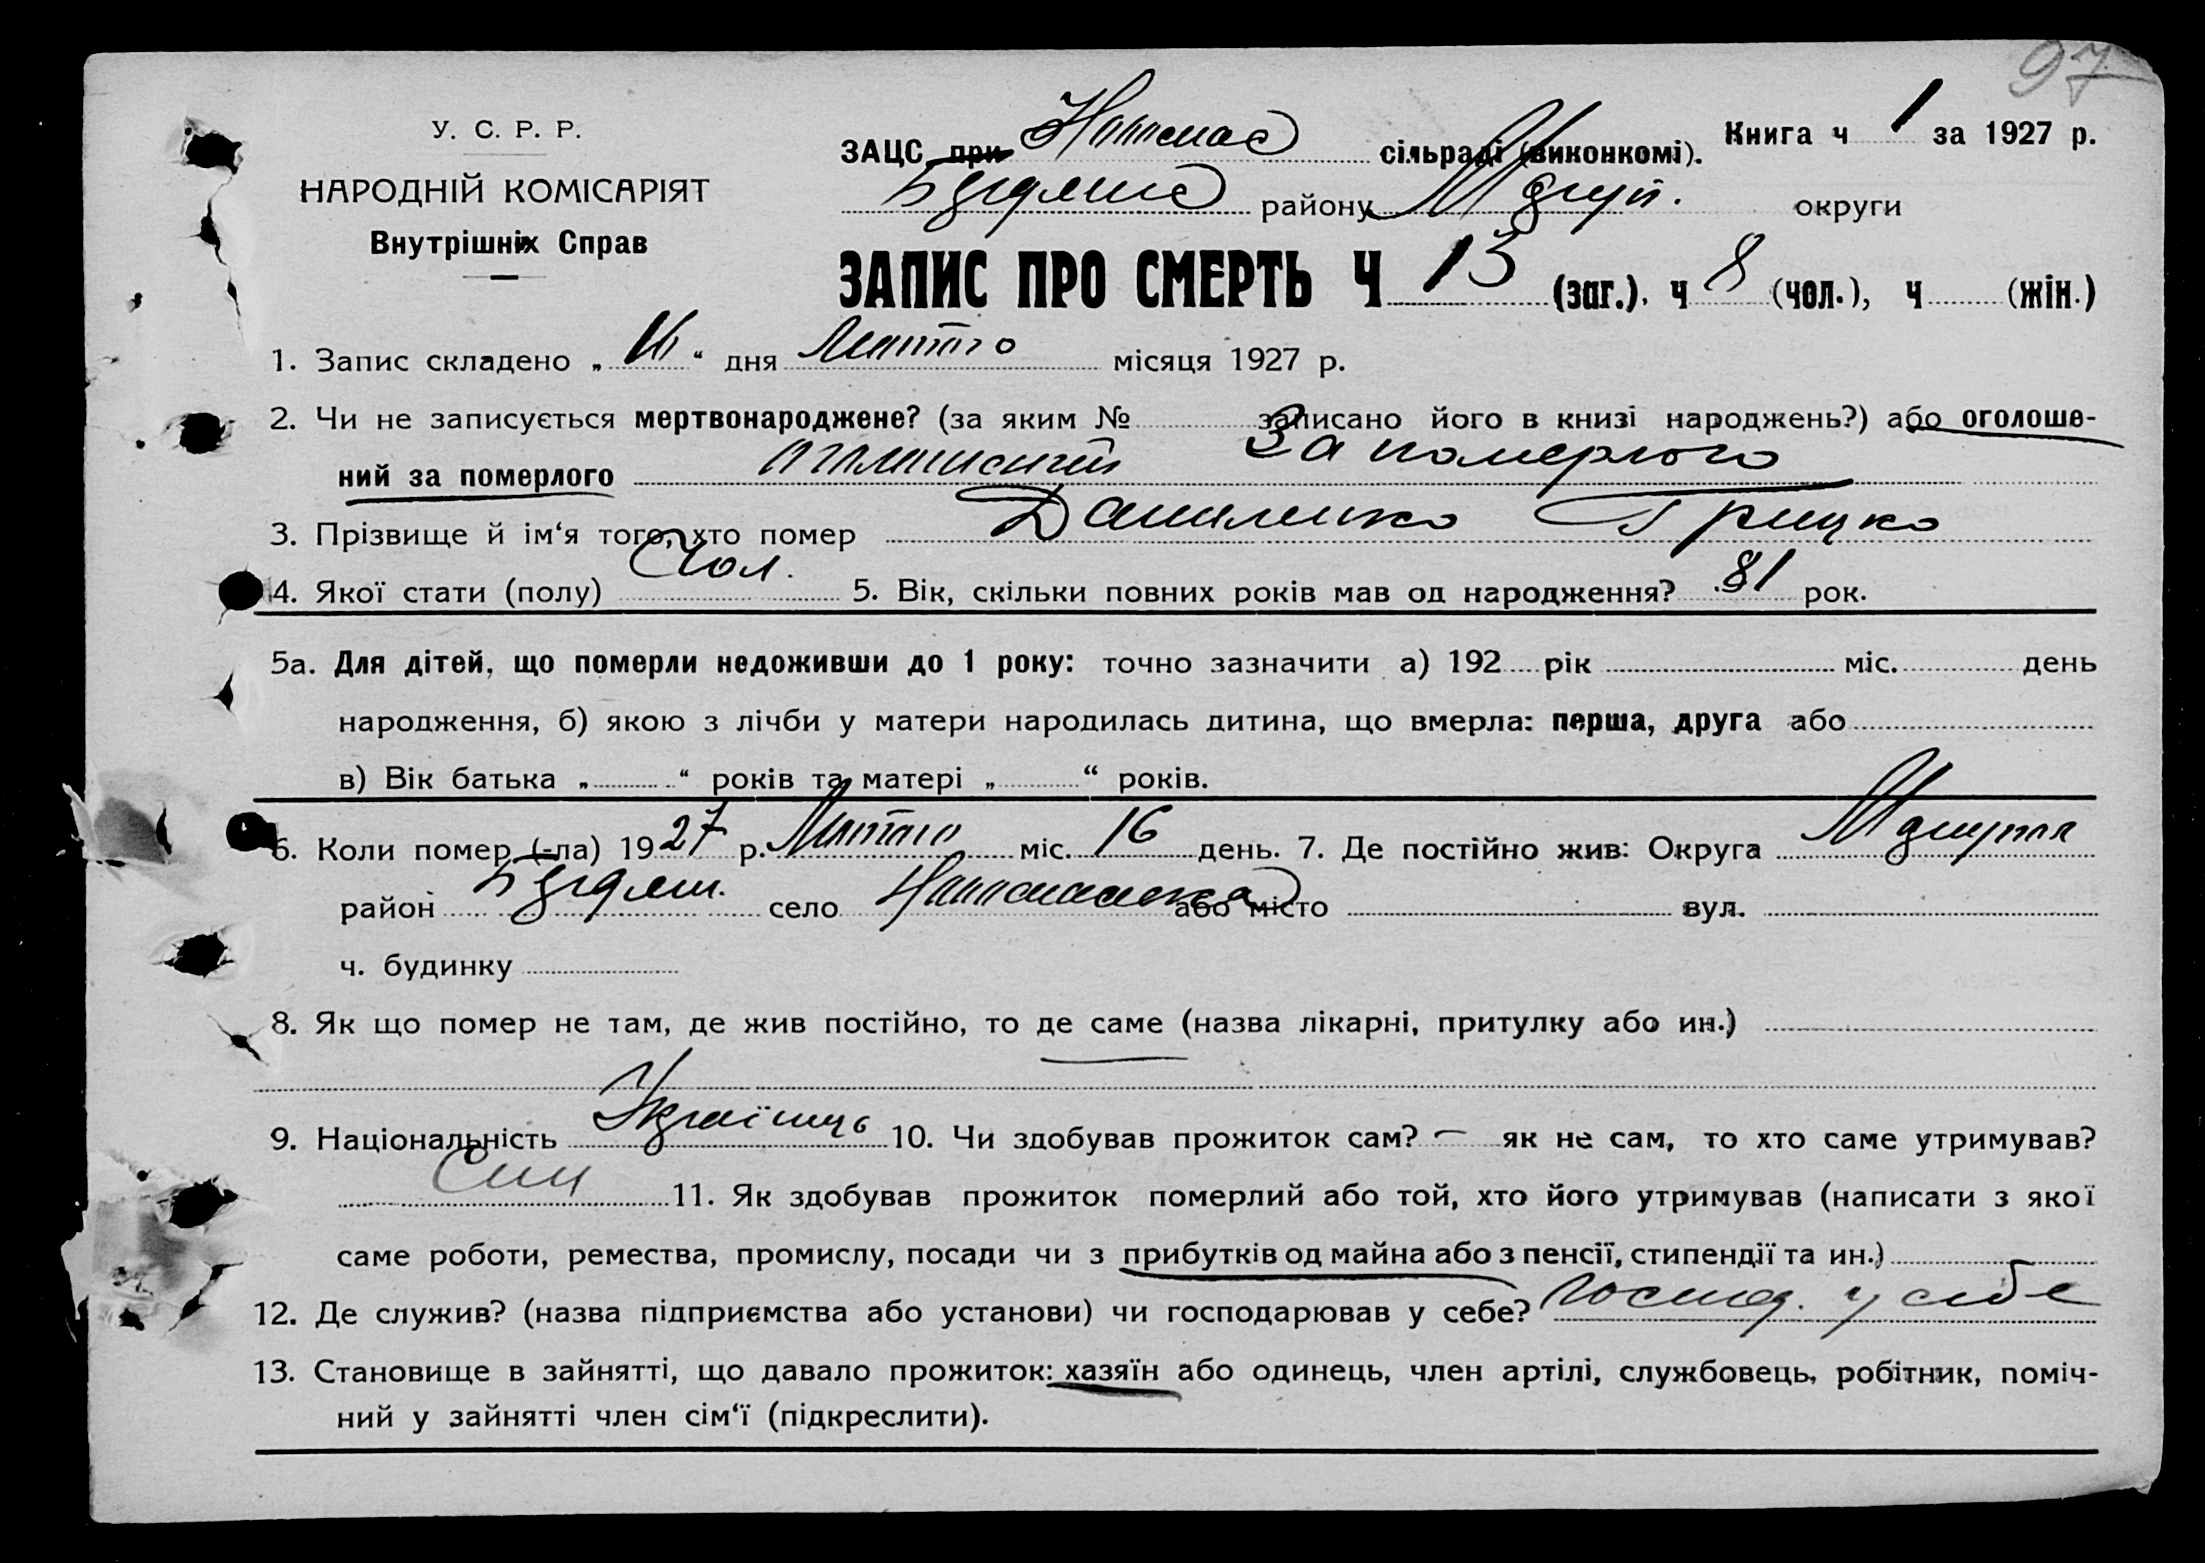 97
У. С. Р. Р.
НАРОДНІЙ КОМІСАРІЯТ
Внутрішніх Справ
ЗАЦС при Новоспас сільраді (виконкомі). Книга ч 1 за 1927 р.
району Маріуп. округи
ЗАПИС ПРО СМЕРТЬ Ч 13 (заг.). ч 8 (чол.), ч (жін.)
1. Запис складено „ “ дня Лютого місяця 1927 р.
2. Чи не записується мертвонароджене? (за яким № записано його в книзі народжень?) або оголоше-
ний за померлого оголошений За померлого
3. Прізвище й ім‘я того, хто помер Даниленко Грицко
4. Якої стати (полу) Чол. 5. Вік, скільки повних років мав од народження? 81 рок.
5а. Для дітей, що померли недоживши до 1 року: точно зазначити а) 192 рік міс. день
народження, б) якою з лічби у матери народилась дитина, що вмерла: перша, друга або
в) Вік батька „ “ років та матері „ “ років.
6. Коли помер (-ла) 1927 р. Лютого міс. 16 день. 7. Де постійно жив: Округа Маріупол
район село Новоспасівка або місто вул.
ч. будинку
8. Як що помер не там, де жив постійно, то де саме (назва лікарні, притулку або ин.)
9. Національність Українць 10. Чи здобував прожиток сам? — як не сам, то хто саме утримував?
Син 11. Як здобував прожиток померлий або той, хто його утримував (написати з якої
саме роботи, ремества, промислу, посади чи з прибутків од майна або з пенсії, стипендії та ин.)
12. Де служив? (назва підприємства або установи) чи господарював у себе? Господ. у себе
13. Становище в зайнятті, що давало прожиток: хазяїн або одинець, член артілі, службовець, робітник, поміч-
ний у зайнятті член сім‘ї (підкреслити).